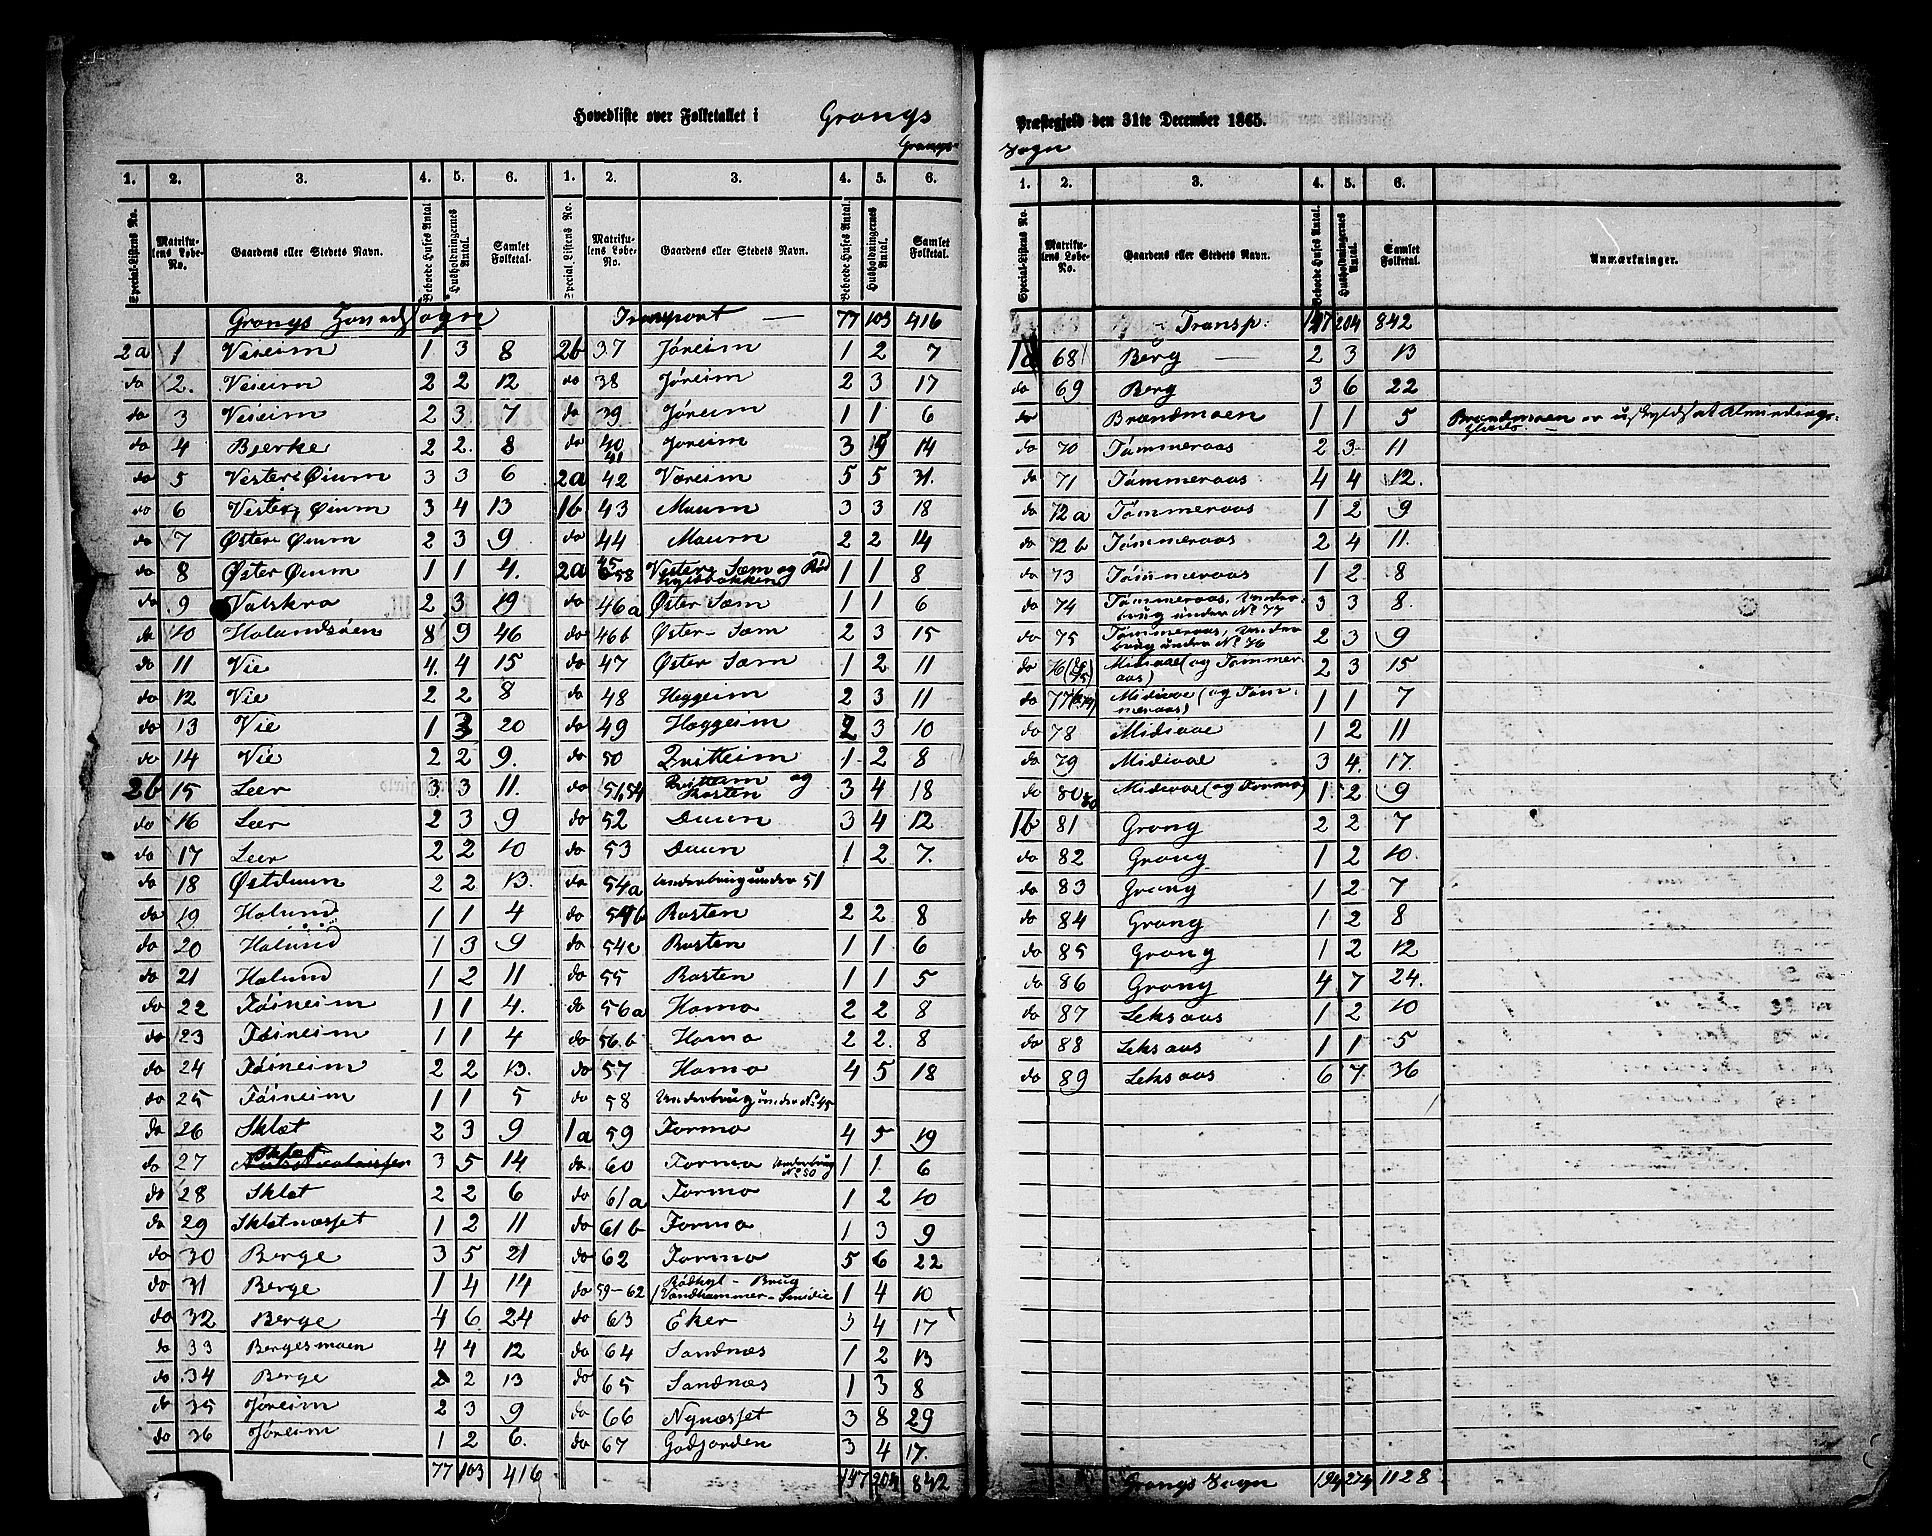 Hovedliste over Folketallet i Grongs Præstegjeld den 31te December 1865.
Grongs Sogn
1. 2. 3. 4. 5. 6. 1. 2. 3. 4. 5. 6.
Special-Listens No. Matrikulens Løbe-No. Gaardens eller Stedets Navn. Beboede Huses Antal. Husholdningernes Antal. Samlet Folketal. Special-Listens No. Matrikulens Løbe-No. Gaardens eller Stedets Navn. Beboede Huses Antal. Husholdningernes Antal. Samlet Folketal.
Grongs Hovedsogn Transport — 77 103 416
2a 1 Veieim 1 3 8 2b 37 Jøreim 1 2 7
do 2. Veieim 2 2 12 do 38 Jøreim 2 3 17
do 3 Veieim 2 3 7 do 39 Jøreim 1 1 6
do 4 Bjerke 2 2. 8 do 40 41 Jøreim 3 14
do 5 Vestere Øium 3 3 6 2a 42 Væreim 5 5 31.
do 6 Vestere Øium 3 4 13 1b 43 Maum 3 3 18
do 7 Østere Øium 2 3 9 do 44 Maum 2 2 14
do 8 Øster Øium 1 1 4. 2a 45 58 Vestere Sæm og Rødhylsbakken 1 1 8
do 9 Valskra 2 3 19 do 46a Øster Sæm 1 1 6
do 10 Halandsøen 8 9 46 do 46b Øster-Sæm 2 3 15
do 11 Vie 4. 4 15 do 47 Øster Sæm 1 2 11
do 12 Vie 2 2 8 do 48 Heggeim 2 3 11
do 13 Vie 1 3 20 do 49 Heggeim 2 3 10
do 14 Vie 2 2 9. do 50 Duitteim 1 2 8
2b 15 Leer 3 3 11. do 51,54 og Rosten 3 4 18
do 16 Leer 2 3 9 do 52 Duun 3 4 12
do 17 Leer 2 2 10 do 53 Duun 1 2 7.
do 18 Østduun 2 2 13. do 54a Underbrug under 51
do 19 Halund 1 1 4 do 54b Rosten 2 2 8
do 20 Halund 1 3 9 do 54c Rosten 1 1 6
do 21 Halund 1 2 11 do 55 Rosten 1 1 5
do 22 Føineim 1 1 4. do 56a Homo 2 2 8
do 23 Føineim 1 1 4 do 56.b Homo 2 2. 8
do 24 Føineim 2 2 13. do 57 Homo 4 5 18
do 25 Føineim 1 1 5 do 58 Underbrug under No 45
do 26 Sklet 2 3 9 1a 59 Formo 4 5 19
do 27 Sklet 3 5 14 do 60 Formo Underbrug No 50 1 1 6
do 28 Sklet 2 2 6 do 61a Formo 1 2 10
do 29 Skletnæsset 1 2 11 do 61b Formo 1 3 9
do 30 Berge 3 5 21 do 62 Formo 5 6 22
do 31 Berge 1 4 14 do 59-62 Rødhyl-Brug Vandhammer-Smidie 1 4 10
do 32 Berge 4 6 24 do 63 Eker 3 4 17
do 33 Bergesmoen 4 4 12 do 64 Sandnæs 1 2 13
do 34 Berge 2 2 13 do 65 Sandnæs 1 3 8
do 35 Jøreim 2 3 9 do 66 Nynæsset 3 8 29
do 36 Jøreim 1 2 6. do 67 Godjorden 3 4 17.
77 103 416 147 204 842
1. 2. 3. 4. 5. 6.
Special-Listens No. Matrikulens Løbe-No. Gaardens eller Stedets Navn. Beboede Huses Antal. Husholdningernes Antal. Samlet Folketal. Anmærkninger.
Transp: 147 204 842
1a 68 Berg — 2 3 13
do 69 Berg 3 6 22
do Brandmoen 1 1 5 Brandmoen er uskyldsat Almindings-
do 70 Tømmeraas 2 3 11
do 71 Tømmeraas 4 4 12.
do 72a Tømmeraas 1 2 9
do 72b Tømmeraas 2 4 11.
do 73 Tømmeraas 1 2 8
do 74 Tømmeraas, Underbrug under No 77 3 3 8.
do 75 Tømmeraas, Underbrug under No 76 2 3 9
do 76 (75) Midivae (og Tømmeraas) 2 3 15
do 77 (74) Midivae (og Tømmeraas) 1 1 7
do 78 Midivae 1 2 11
do 79 Midivae 3 4. 17.
do 80 60 Midivae (og Formo) 1 2 9
1b 81 Grong 2 2 7
do 82 Grong 1 2 10.
do 83 Grong 1 2 7
do 84 Grong 1 2 8
do 85 Grong 1 2 12
do 86 Grong 4 7 24.
do 87 Leksaas 1 2 10
do 88 Leksaas 1 1 5
do 89 Leksaas 6 7. 36
Grongs Sogn 194 274 1128